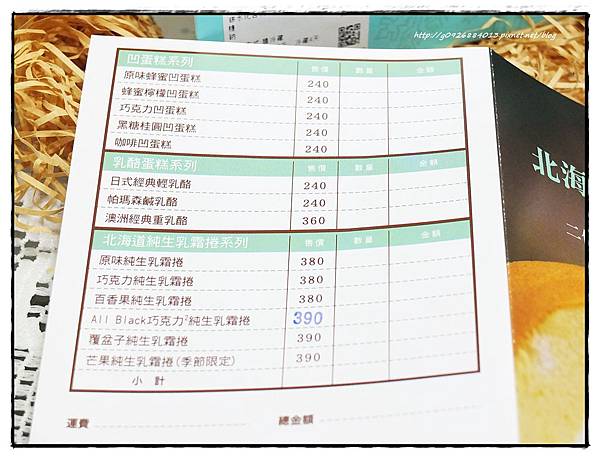 http://y0926884013.pixnet.net/blog
凹蛋糕系列 售價 數量 金額
原味蜂蜜凹蛋糕 240
蜂蜜檸檬凹蛋糕 240
巧克力凹蛋糕 240
黑糖桂圓凹蛋糕 240
咖啡凹蛋糕 240
乳酪蛋糕系列 售價 數量 金額
日式經典輕乳酪 240
帕瑪森鹹乳酪 240
澳洲經典重乳酪 360
北海道純生乳霜捲系列 售價 數量 金額
原味純生乳霜捲 380
巧克力純生乳霜捲 380
百香果純生乳霜捲 380
All Black巧克力²純生乳霜捲 390
覆盆子純生乳霜捲 390
芒果純生乳霜捲(季節限定) 390
小計
運費 總金額
北海